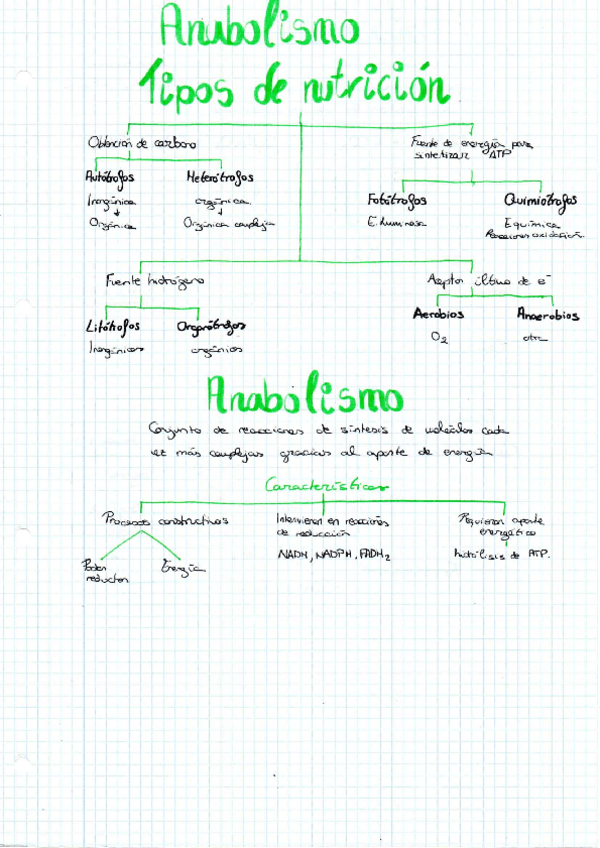 Anabolismo
Tipos de nutrición
Obtención de carbono
Fuente de energía para
sintetizar ATP
Autótrofos
Heterótrofos
Inorgánica
orgánica
Orgánica
Orgánica compleja
Fotótrofos
Quimiótrofos
E. luminosa
E química
Reacciones oxidación.
Fuente hidrógeno
Aceptor último de e⁻
Litótrofos
Organótrofos
Inorgánicos
orgánicos
Aerobios
Anaerobios
O₂
otro
Anabolismo
Conjunto de reacciones de síntesis de moléculas cada
vez más complejas gracias al aporte de energía
Características
Procesos constructivos
Intervienen en reacciones
de reducción
Requieren aporte
energético
NADH, NADPH, FADH₂
hidrólisis de ATP.
Poder
reductor
Energía